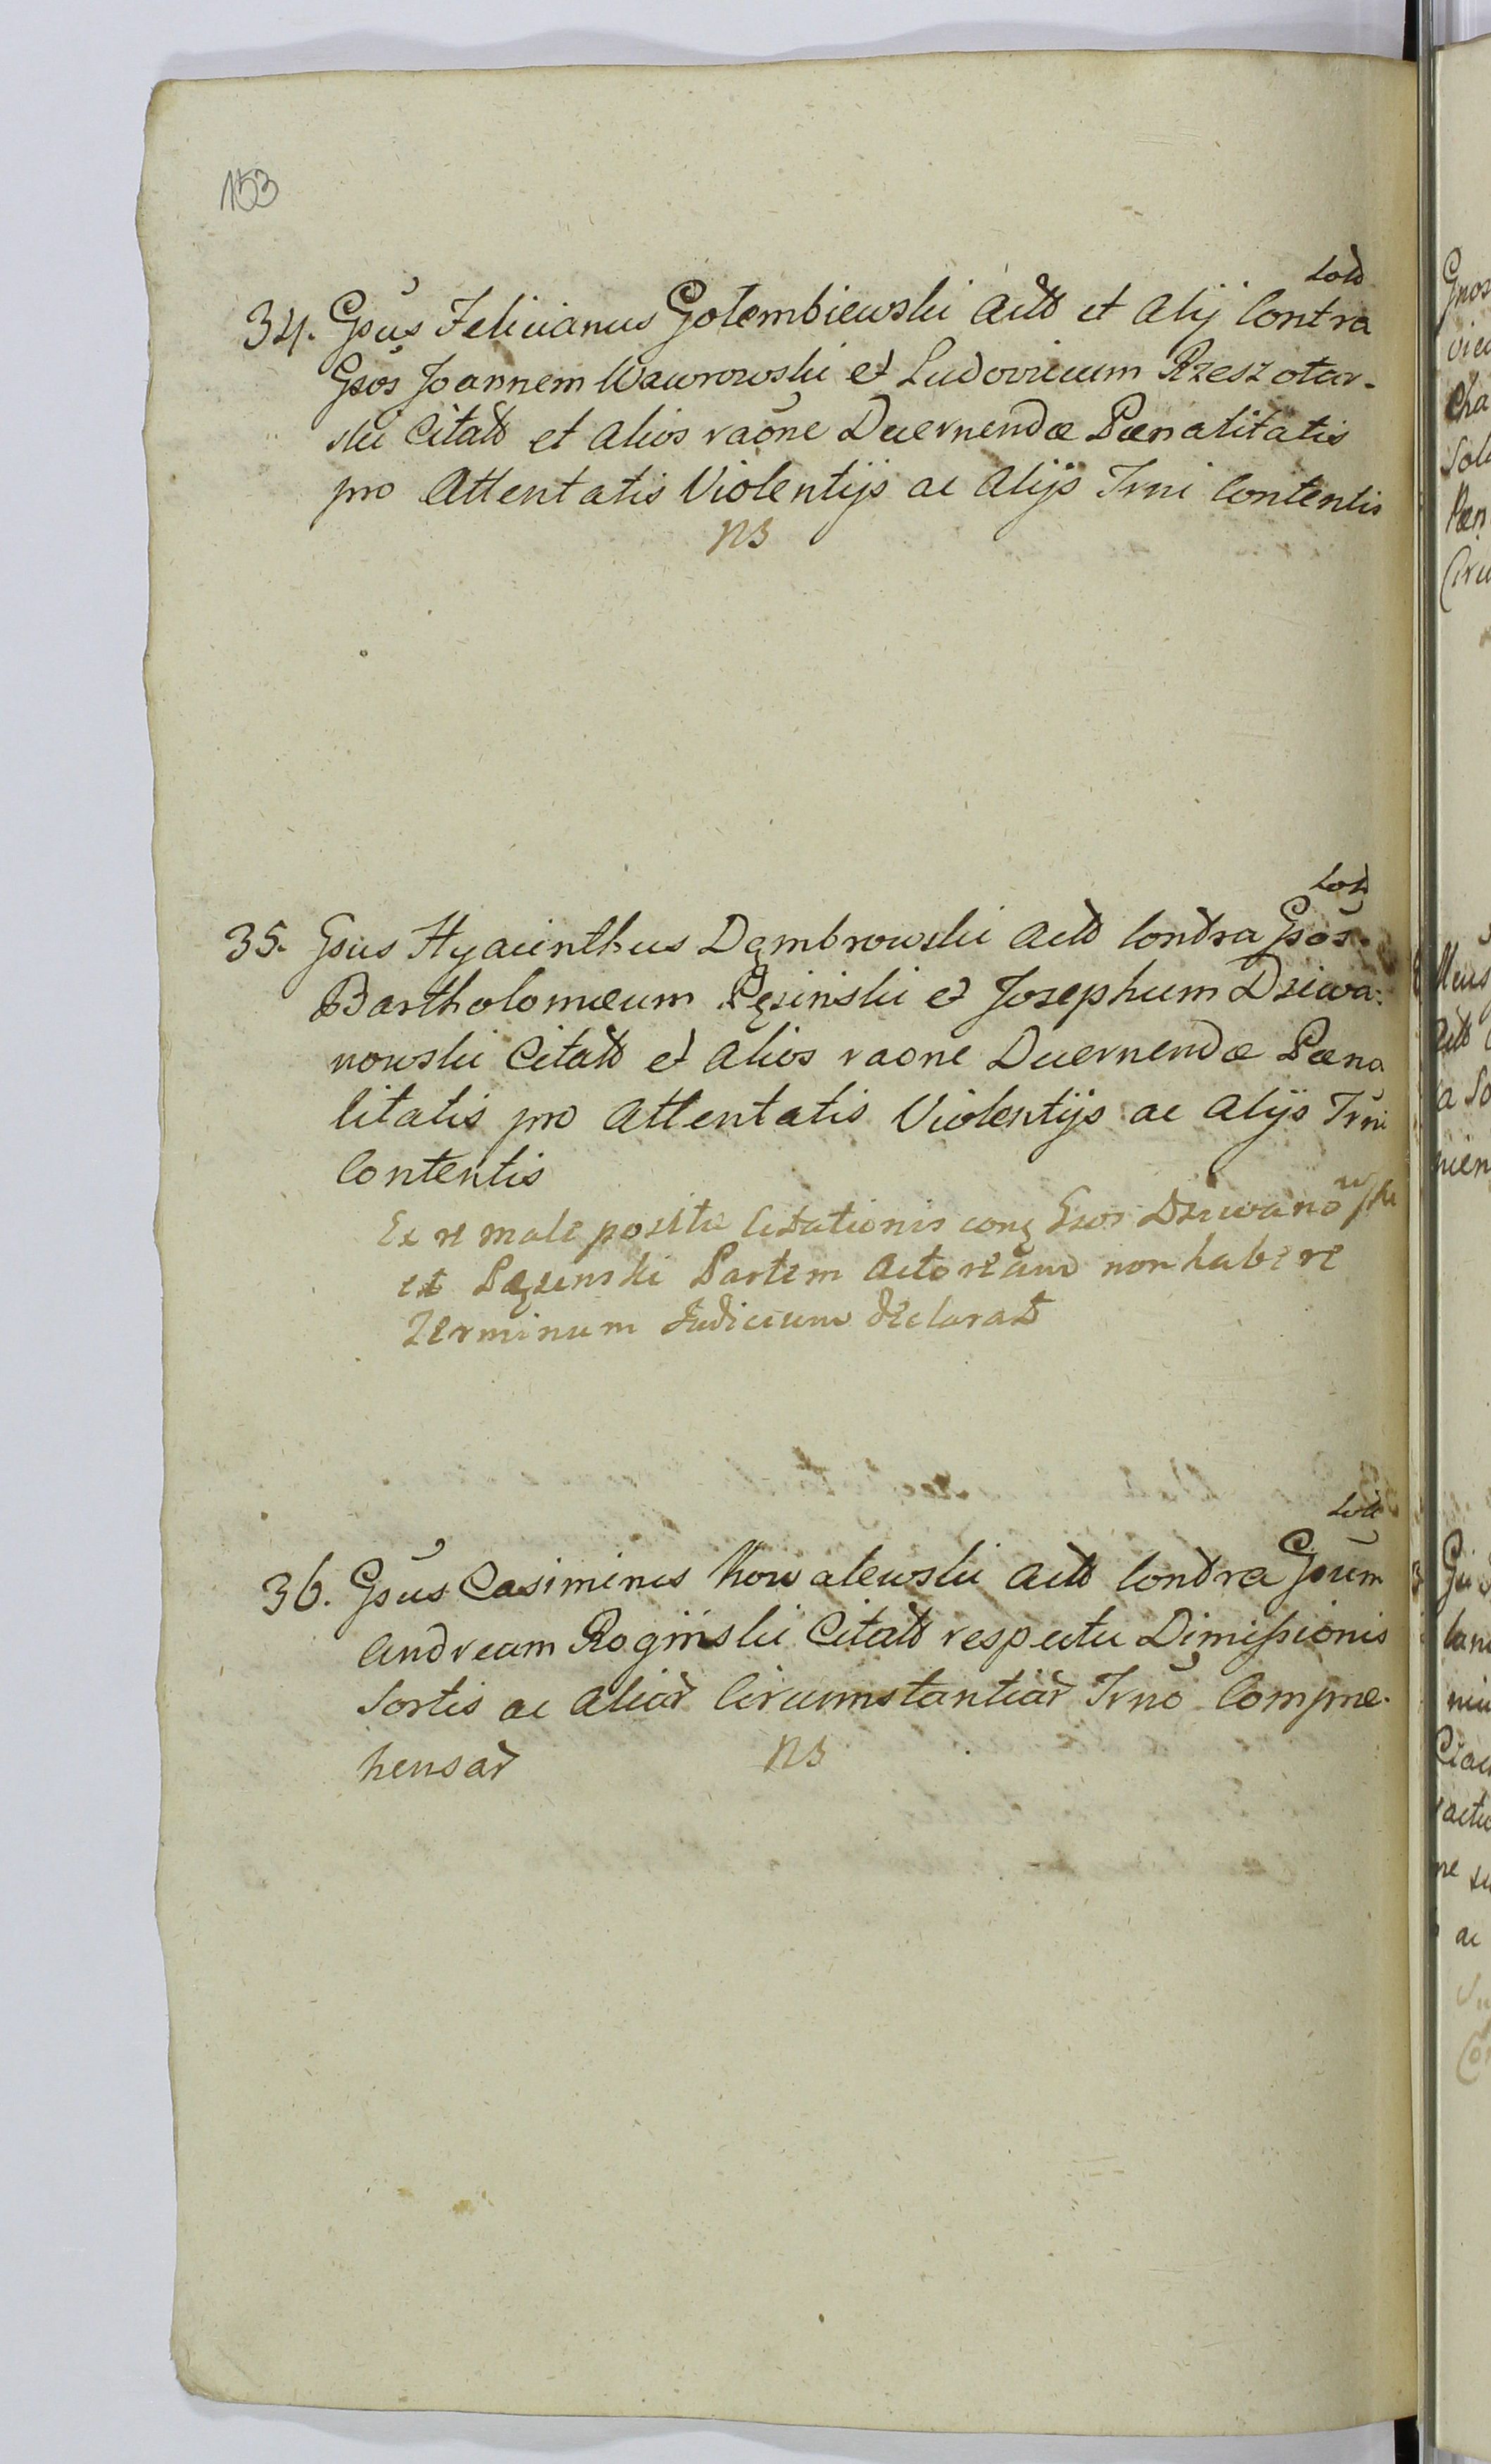 153
Sold
34. Gsus Felicianus Golembiewski Actt et Alij Contra
Gsos Joannem Wawrowski et Ludovicum Rzeszotar-
ski Citatt et Alios raone Decernendæ Pænalitatis
pro Attentatis Violentijs ac Alijs Trni Contentis
NS
35. Gsus Hyacinthus Dąmbrowski Actt Contra Gsos
Bartholomæum Pęsinski et Josephum Dziwa:
nowski Citatt et Alios raone Decernendæ Pæna
litatis pro Attentatis Violentijs ac Alijs Trni
Contentis
Ex re male positæ Citationis Gsos Dziwanowski
et Partem Actoream non habere
Terminum Judicium declarat
36. Gsus Casimirus Kowalewski Actt Contra Gsum
Andream Roginski Citatt respectu Dimissionis
Sortis ac Aliar Circumstantiar Trno Compre-
hensar NS